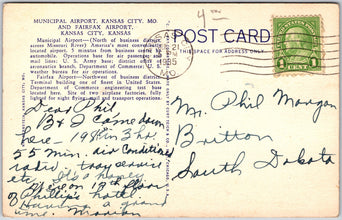 MUNICIPAL AIRPORT, KANSAS CITY, MO.
AND FAIRFAX AIRPORT,
KANSAS CITY, KANSAS
Municipal Airport—(North of business district
across Missouri River) America's most conveniently
located airport, 5 minutes from business center by
automobile. Operations base for air passenger and
mail lines; U. S. Army base; district office of
aeronautics branch, Department of Commerce; U. S.
weather bureau for air operations.
Fairfax Airport—Northwest of business district.
Terminal building one of finest in United States.
Department of Commerce engineering test base
located here. Site of two airplane factories, fully
lighted for night flying, mail and transport operations.
4
1935
MO
POST CARD
THIS SPACE FOR ADDRESS ONLY
1 CENT 1
Dear Phil
B & I came down
here - 198 in 3 hrs
55 min. air conditioned
radio, tray service
etc. It's a honey
We're on 13th floor
Phillips hotel
Having a grand
time. Marian
Mr. Phil Morgan
Britton
South Dakota